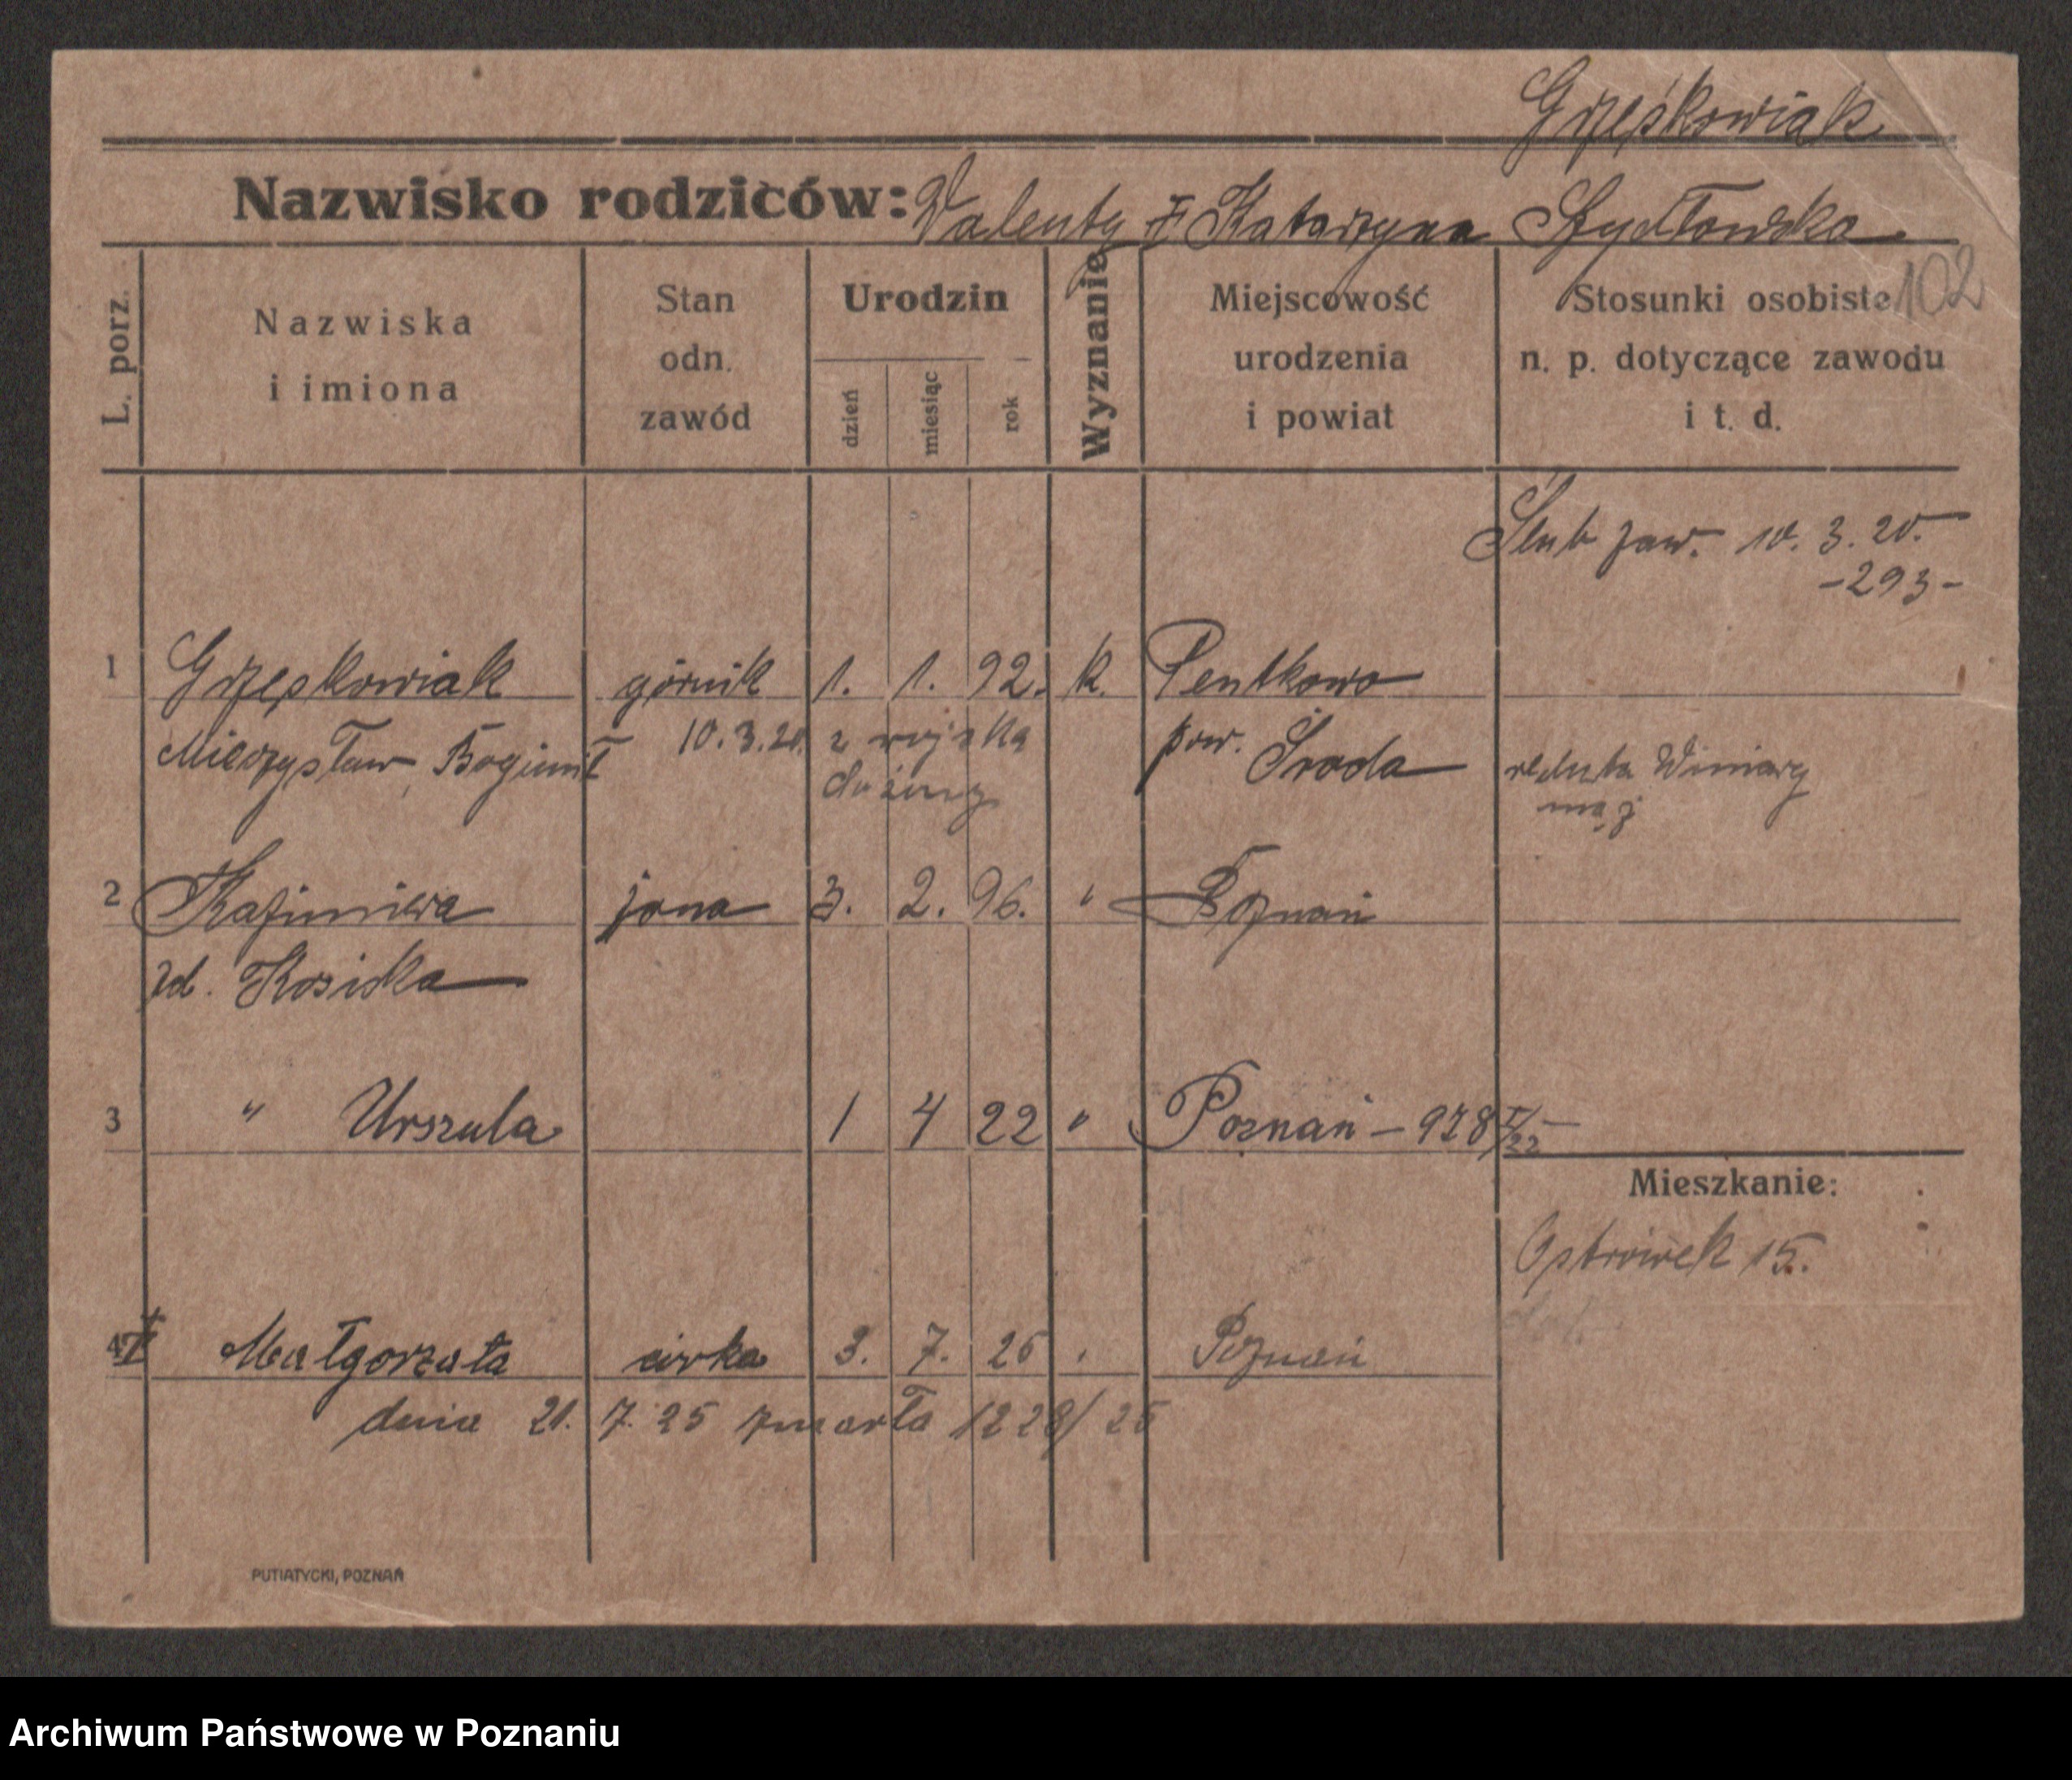 Grzęśkowiak
Nazwisko rodziców: Walenty Katarzyna Szydłowska
102
L. porz.
Nazwiska
i imiona
Stan
odn.
zawód
Urodzin
dzień
miesiąc
rok
Wyznanie
Miejscowość
urodzenia
i powiat
Stosunki osobiste
n. p. dotyczące zawodu
i t. d.
Ślub zaw. 10. 3. 20.
-293-
1 Grzęśkowiak górnik 1. 1. 92. k. Pentkowo
Mieczysław, Bogumił 10. 3. 20. z wojska pow. Środa reduta Winiary
do żony mąż
2 Kazimiera żona 3. 2. 96. " Poznań
zd. Kosicka
3 " Urszula 1 4 22 " Poznań - 928 I/22
Mieszkanie:
Ostrówek 15.
4 Małgorzata córka 3. 7. 25 " Poznań
dnia 21. 7. 25 zmarła 1228/25
PUTIATYCKI, POZNAŃ
Archiwum Państwowe w Poznaniu